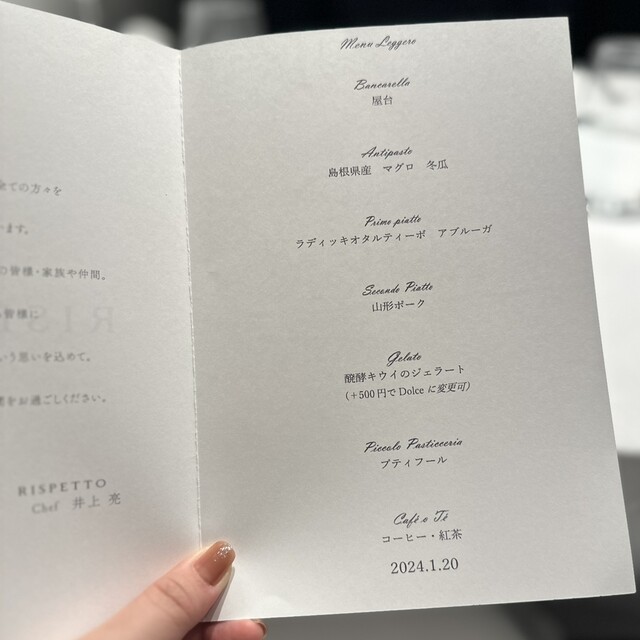 全ての方々を
ます。
の皆様・家族や仲間。
皆様に
いう思いを込めて。
間をお過ごしください。
RISPETTO
Chef 井上 亮
Menu Leggero
Bancarella
屋台
Antipasto
島根県産 マグロ 冬瓜
Primo piatto
ラディッキオタルティーボ アブルーガ
Secondo Piatto
山形ポーク
Gelato
醗酵キウイのジェラート
(+500円でDolceに変更可)
Piccolo Pasticceria
プティフール
Café e Té
コーヒー・紅茶
2024.1.20